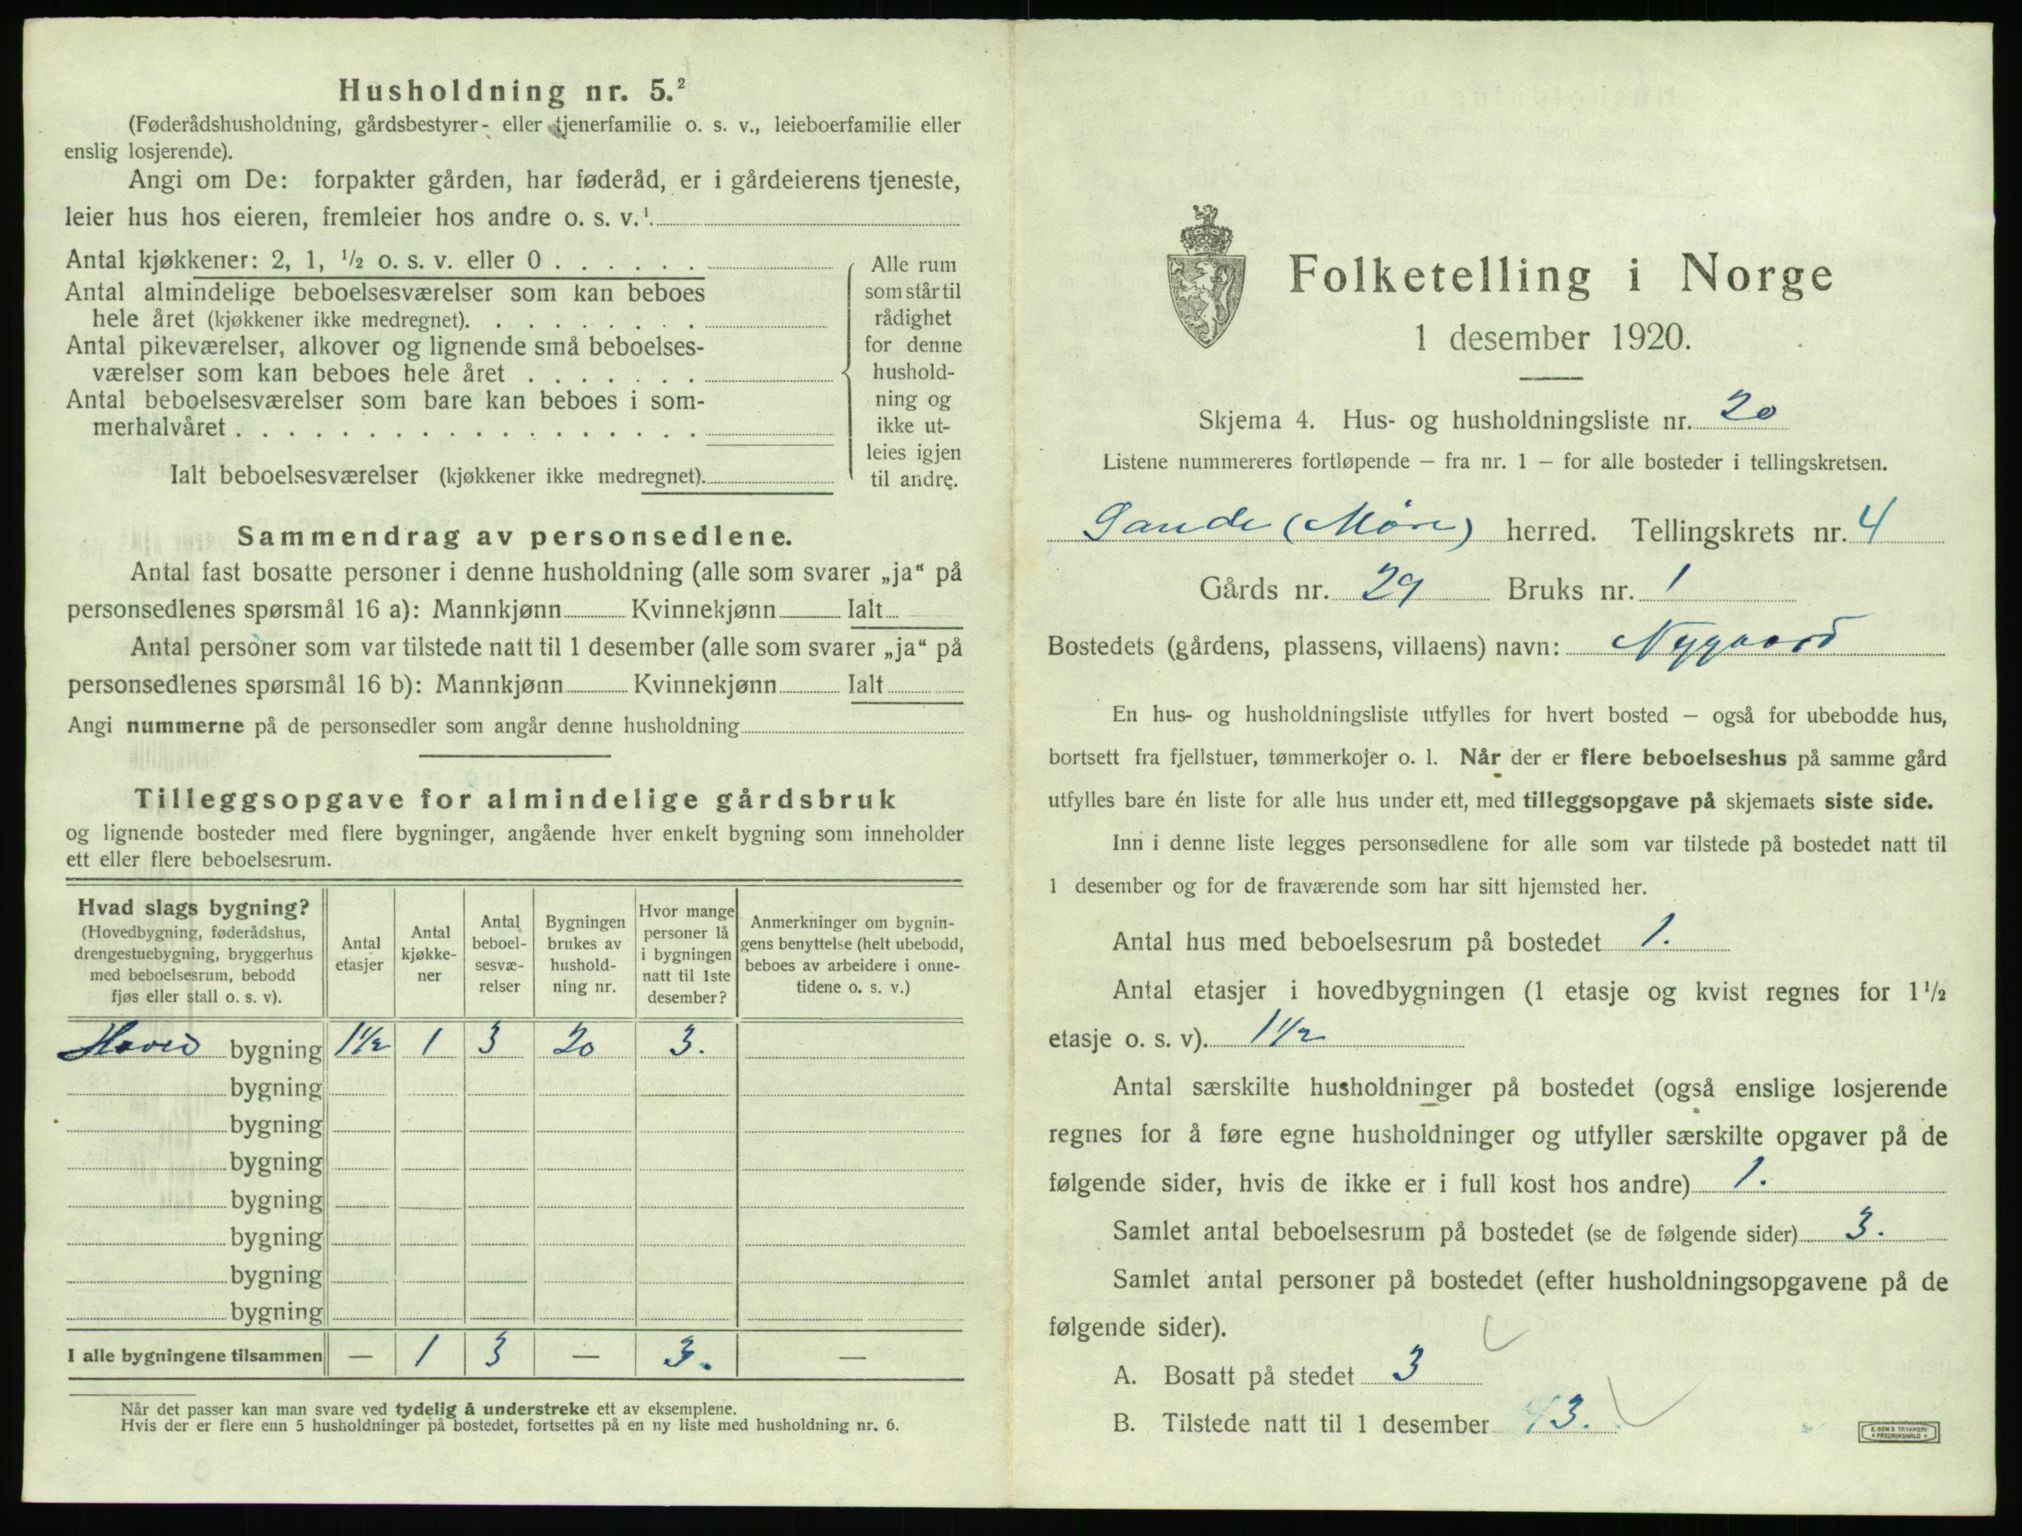 Husholdning nr. 5.²
(Føderådshusholdning, gårdsbestyrer- eller tjenerfamilie o. s. v., leieboerfamilie eller
enslig losjerende).
Angi om De: forpakter gården, har føderåd, er i gårdeierens tjeneste,
leier hus hos eieren, fremleier hos andre o. s. v.¹
Antal kjøkkener: 2, 1, ½ o. s. v. eller 0
Antal almindelige beboelsesværelser som kan beboes
hele året (kjøkkener ikke medregnet)
Antal pikeværelser, alkover og lignende små beboelses-
værelser som kan beboes hele året
Antal beboelsesværelser som bare kan beboes i som-
merhalvåret
Ialt beboelsesværelser (kjøkkener ikke medregnet)
Alle rum
som står til
rådighet
for denne
hushold-
ning og
ikke ut-
leies igjen
til andre.
Sammendrag av personsedlene.
Antal fast bosatte personer i denne husholdning (alle som svarer „ja“ på
personsedlenes spørsmål 16 a): Mannkjønn Kvinnekjønn Ialt
Antal personer som var tilstede natt til 1 desember (alle som svarer „ja“ på
personsedlenes spørsmål 16 b): Mannkjønn Kvinnekjønn Ialt
Angi nummerne på de personsedler som angår denne husholdning
Tilleggsopgave for almindelige gårdsbruk
og lignende bosteder med flere bygninger, angående hver enkelt bygning som inneholder
ett eller flere beboelsesrum.
Hvad slags bygning?
(Hovedbygning, føderådshus,
drengestuebygning, bryggerhus
med beboelsesrum, bebodd
fjøs eller stall o. s. v).
Antal
etasjer
Antal
kjøkke-
ner
Antal
beboel-
sesvæ-
relser
Bygningen
brukes av
hushold-
ning nr.
Hvor mange
personer lå
i bygningen
natt til 1ste
desember?
Anmerkninger om bygnin-
gens benyttelse (helt ubebodd,
beboes av arbeidere i onne-
tidene o. s. v.)
Hoved bygning 1½ 1 3 20 3.
bygning
bygning
bygning
bygning
bygning
bygning
bygning
I alle bygningene tilsammen — 1 3 — 3. —
Når det passer kan man svare ved tydelig å understreke ett av eksemplene.
Hvis der er flere enn 5 husholdninger på bostedet, fortsettes på en ny liste med husholdning nr. 6.
Folketelling i Norge
1 desember 1920.
Skjema 4. Hus- og husholdningsliste nr. 20
Listene nummereres fortløpende – fra nr. 1 – for alle bosteder i tellingskretsen.
Sande (Møre) herred. Tellingskrets nr. 4
Gårds nr. 29 Bruks nr. 1
Bostedets (gårdens, plassens, villaens) navn: Nygaard
En hus- og husholdningsliste utfylles for hvert bosted – også for ubebodde hus,
bortsett fra fjellstuer, tømmerkojer o. l. Når der er flere beboelseshus på samme gård
utfylles bare én liste for alle hus under ett, med tilleggsopgave på skjemaets siste side.
Inn i denne liste legges personsedlene for alle som var tilstede på bostedet natt til
1 desember og for de fraværende som har sitt hjemsted her.
Antal hus med beboelsesrum på bostedet 1.
Antal etasjer i hovedbygningen (1 etasje og kvist regnes for 1½
etasje o. s. v). 1½
Antal særskilte husholdninger på bostedet (også enslige losjerende
regnes for å føre egne husholdninger og utfyller særskilte opgaver på de
følgende sider, hvis de ikke er i full kost hos andre) 1.
Samlet antal beboelsesrum på bostedet (se de følgende sider) 3.
Samlet antal personer på bostedet (efter husholdningsopgavene på de
følgende sider).
A. Bosatt på stedet 3
B. Tilstede natt til 1 desember 3.